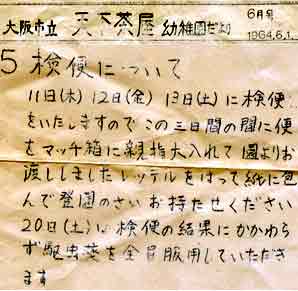 大阪市立 天下茶屋 幼稚園だより
6月号
1964.6.1.
5 検便について
11日(木) 12日(金) 13日(土)に検便
をいたしますのでこの三日間の間に便
をマッチ箱に親指大入れて園よりお
渡ししましたレッテルをはって紙に包
んで登園のさいお持たせください
20日(土)に検便の結果にかかわら
ず駆虫薬を全員服用していただき
ます